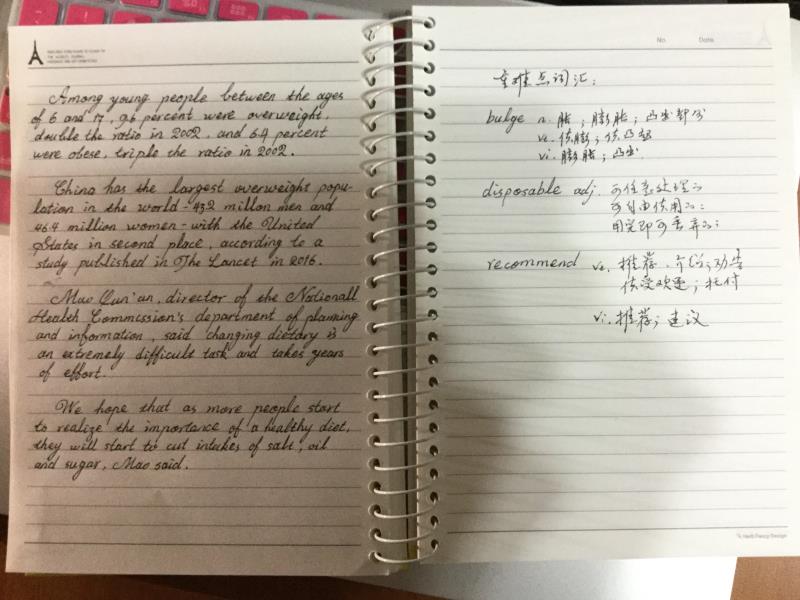 Among young people between the ages
of 6 and 17, 9.6 percent were overweight,
double the ratio in 2002, and 6.4 percent
were obese, triple the ratio in 2002.
China has the largest overweight popu-
lation in the world - 43.2 millon men and
46.4 million women - with the United
States in second place, according to a
study published in The Lancet in 2016.
Mao Qun'an, director of the Nationall
Health Commission's department of planning
and information, said changing dietary is
an extremely difficult task and takes years
of effort.
We hope that as more people start
to realize the importance of a healthy diet,
they will start to cut intakes of salt, oil
and sugar, Mao said.
No. Date.
重难点词汇:
bulge n. 胀;膨胀;凸出部分
vt. 使膨;使凸起
vi. 膨胀;凸出
disposable adj. 可任意处理的
可自由使用的;
用完即可丢弃的;
recommend vt. 推荐、介绍;劝告
使受欢迎;托付
vi. 推荐;建议